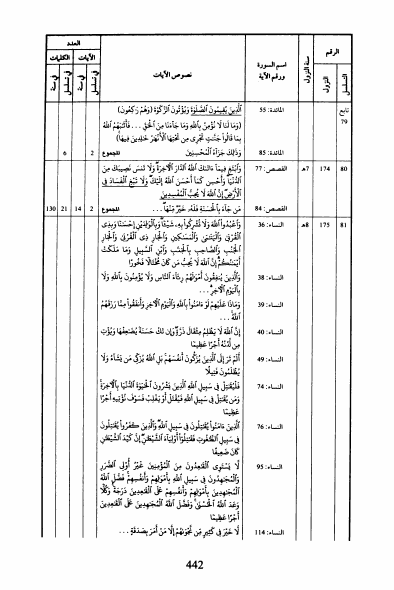 العدد
الرقم
الكليات
الآيات
نصوص الآيات
اسم السورة
ورقم الآية
سنة النزول
النزول
التسلسل
في سنة
في تسلسل
في سنة
في تسلسل
ٱلَّذِينَ يُقِيمُونَ ٱلصَّلَوٰةَ وَيُؤْتُونَ ٱلزَّكَوٰةَ (وَهُمْ رَٰكِعُونَ)
المائدة: 55
تابع
79
(وَمَا لَنَا لَا نُؤْمِنُ بِٱللَّهِ وَمَا جَآءَنَا مِنَ ٱلْحَقِّ ... فَأَثَٰبَهُمُ ٱللَّهُ
بِمَا قَالُوا۟ جَنَّٰتٍ تَجْرِى مِن تَحْتِهَا ٱلْأَنْهَٰرُ خَٰلِدِينَ فِيهَا)
وَذَٰلِكَ جَزَآءُ ٱلْمُحْسِنِينَ
المائدة: 85
المجموع 2 6
وَٱبْتَغِ فِيمَآ ءَاتَىٰكَ ٱللَّهُ ٱلدَّارَ ٱلْأَخِرَةَ وَلَا تَنسَ نَصِيبَكَ مِنَ
ٱلدُّنْيَا وَأَحْسِن كَمَآ أَحْسَنَ ٱللَّهُ إِلَيْكَ وَلَا تَبْغِ ٱلْفَسَادَ فِى
ٱلْأَرْضِ إِنَّ ٱللَّهَ لَا يُحِبُّ ٱلْمُفْسِدِينَ
القصص: 77
7هـ 174 80
مَن جَآءَ بِٱلْحَسَنَةِ فَلَهُۥ خَيْرٌ مِّنْهَا...
القصص: 84
المجموع 2 14 21 130
وَٱعْبُدُوا۟ ٱللَّهَ وَلَا تُشْرِكُوا۟ بِهِۦ شَيْـًٔا وَبِٱلْوَٰلِدَيْنِ إِحْسَٰنًا وَبِذِى
ٱلْقُرْبَىٰ وَٱلْيَتَٰمَىٰ وَٱلْمَسَٰكِينِ وَٱلْجَارِ ذِى ٱلْقُرْبَىٰ وَٱلْجَارِ
ٱلْجُنُبِ وَٱلصَّاحِبِ بِٱلْجَنۢبِ وَٱبْنِ ٱلسَّبِيلِ وَمَا مَلَكَتْ
أَيْمَٰنُكُمْ إِنَّ ٱللَّهَ لَا يُحِبُّ مَن كَانَ مُخْتَالًا فَخُورًا
النساء: 36
8هـ 175 81
وَٱلَّذِينَ يُنفِقُونَ أَمْوَٰلَهُمْ رِئَآءَ ٱلنَّاسِ وَلَا يُؤْمِنُونَ بِٱللَّهِ وَلَا
بِٱلْيَوْمِ ٱلْأَخِرِ...
النساء: 38
وَمَاذَا عَلَيْهِمْ لَوْ ءَامَنُوا۟ بِٱللَّهِ وَٱلْيَوْمِ ٱلْأَخِرِ وَأَنفَقُوا۟ مِمَّا رَزَقَهُمُ
ٱللَّهُ...
النساء: 39
إِنَّ ٱللَّهَ لَا يَظْلِمُ مِثْقَالَ ذَرَّةٍ وَإِن تَكُ حَسَنَةً يُضَٰعِفْهَا وَيُؤْتِ
مِن لَّدُنْهُ أَجْرًا عَظِيمًا
النساء: 40
أَلَمْ تَرَ إِلَى ٱلَّذِينَ يُزَكُّونَ أَنفُسَهُم بَلِ ٱللَّهُ يُزَكِّى مَن يَشَآءُ وَلَا
يُظْلَمُونَ فَتِيلًا
النساء: 49
فَلْيُقَٰتِلْ فِى سَبِيلِ ٱللَّهِ ٱلَّذِينَ يَشْرُونَ ٱلْحَيَوٰةَ ٱلدُّنْيَا بِٱلْأَخِرَةِ
وَمَن يُقَٰتِلْ فِى سَبِيلِ ٱللَّهِ فَيُقْتَلْ أَوْ يَغْلِبْ فَسَوْفَ نُؤْتِيهِ أَجْرًا
عَظِيمًا
النساء: 74
ٱلَّذِينَ ءَامَنُوا۟ يُقَٰتِلُونَ فِى سَبِيلِ ٱللَّهِ وَٱلَّذِينَ كَفَرُوا۟ يُقَٰتِلُونَ
فِى سَبِيلِ ٱلطَّٰغُوتِ فَقَٰتِلُوٓا۟ أَوْلِيَآءَ ٱلشَّيْطَٰنِ إِنَّ كَيْدَ ٱلشَّيْطَٰنِ
كَانَ ضَعِيفًا
النساء: 76
لَا يَسْتَوِى ٱلْقَٰعِدُونَ مِنَ ٱلْمُؤْمِنِينَ غَيْرُ أُو۟لِى ٱلضَّرَرِ
وَٱلْمُجَٰهِدُونَ فِى سَبِيلِ ٱللَّهِ بِأَمْوَٰلِهِمْ وَأَنفُسِهِمْ فَضَّلَ ٱللَّهُ
ٱلْمُجَٰهِدِينَ بِأَمْوَٰلِهِمْ وَأَنفُسِهِمْ عَلَى ٱلْقَٰعِدِينَ دَرَجَةً وَكُلًّا
وَعَدَ ٱللَّهُ ٱلْحُسْنَىٰ وَفَضَّلَ ٱللَّهُ ٱلْمُجَٰهِدِينَ عَلَى ٱلْقَٰعِدِينَ
أَجْرًا عَظِيمًا
النساء: 95
لَا خَيْرَ فِى كَثِيرٍ مِّن نَّجْوَىٰهُمْ إِلَّا مَنْ أَمَرَ بِصَدَقَةٍ...
النساء: 114
442